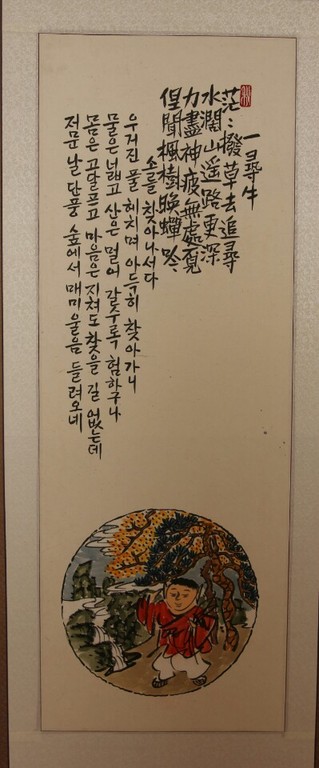 一 尋牛
茫〻撥草去追尋
水濶山遥路更深
力盡神疲無處覓
但聞楓樹晩蟬吟
소를 찾아나서다
우거진 풀 헤치며 아득히 찾아가니
물은 넓고 산은 멀어 갈수록 험하구나
몸은 고달프고 마음은 지쳐도 찾을 길 없는데
저문 날 단풍 숲에서 매미 울음 들려오네